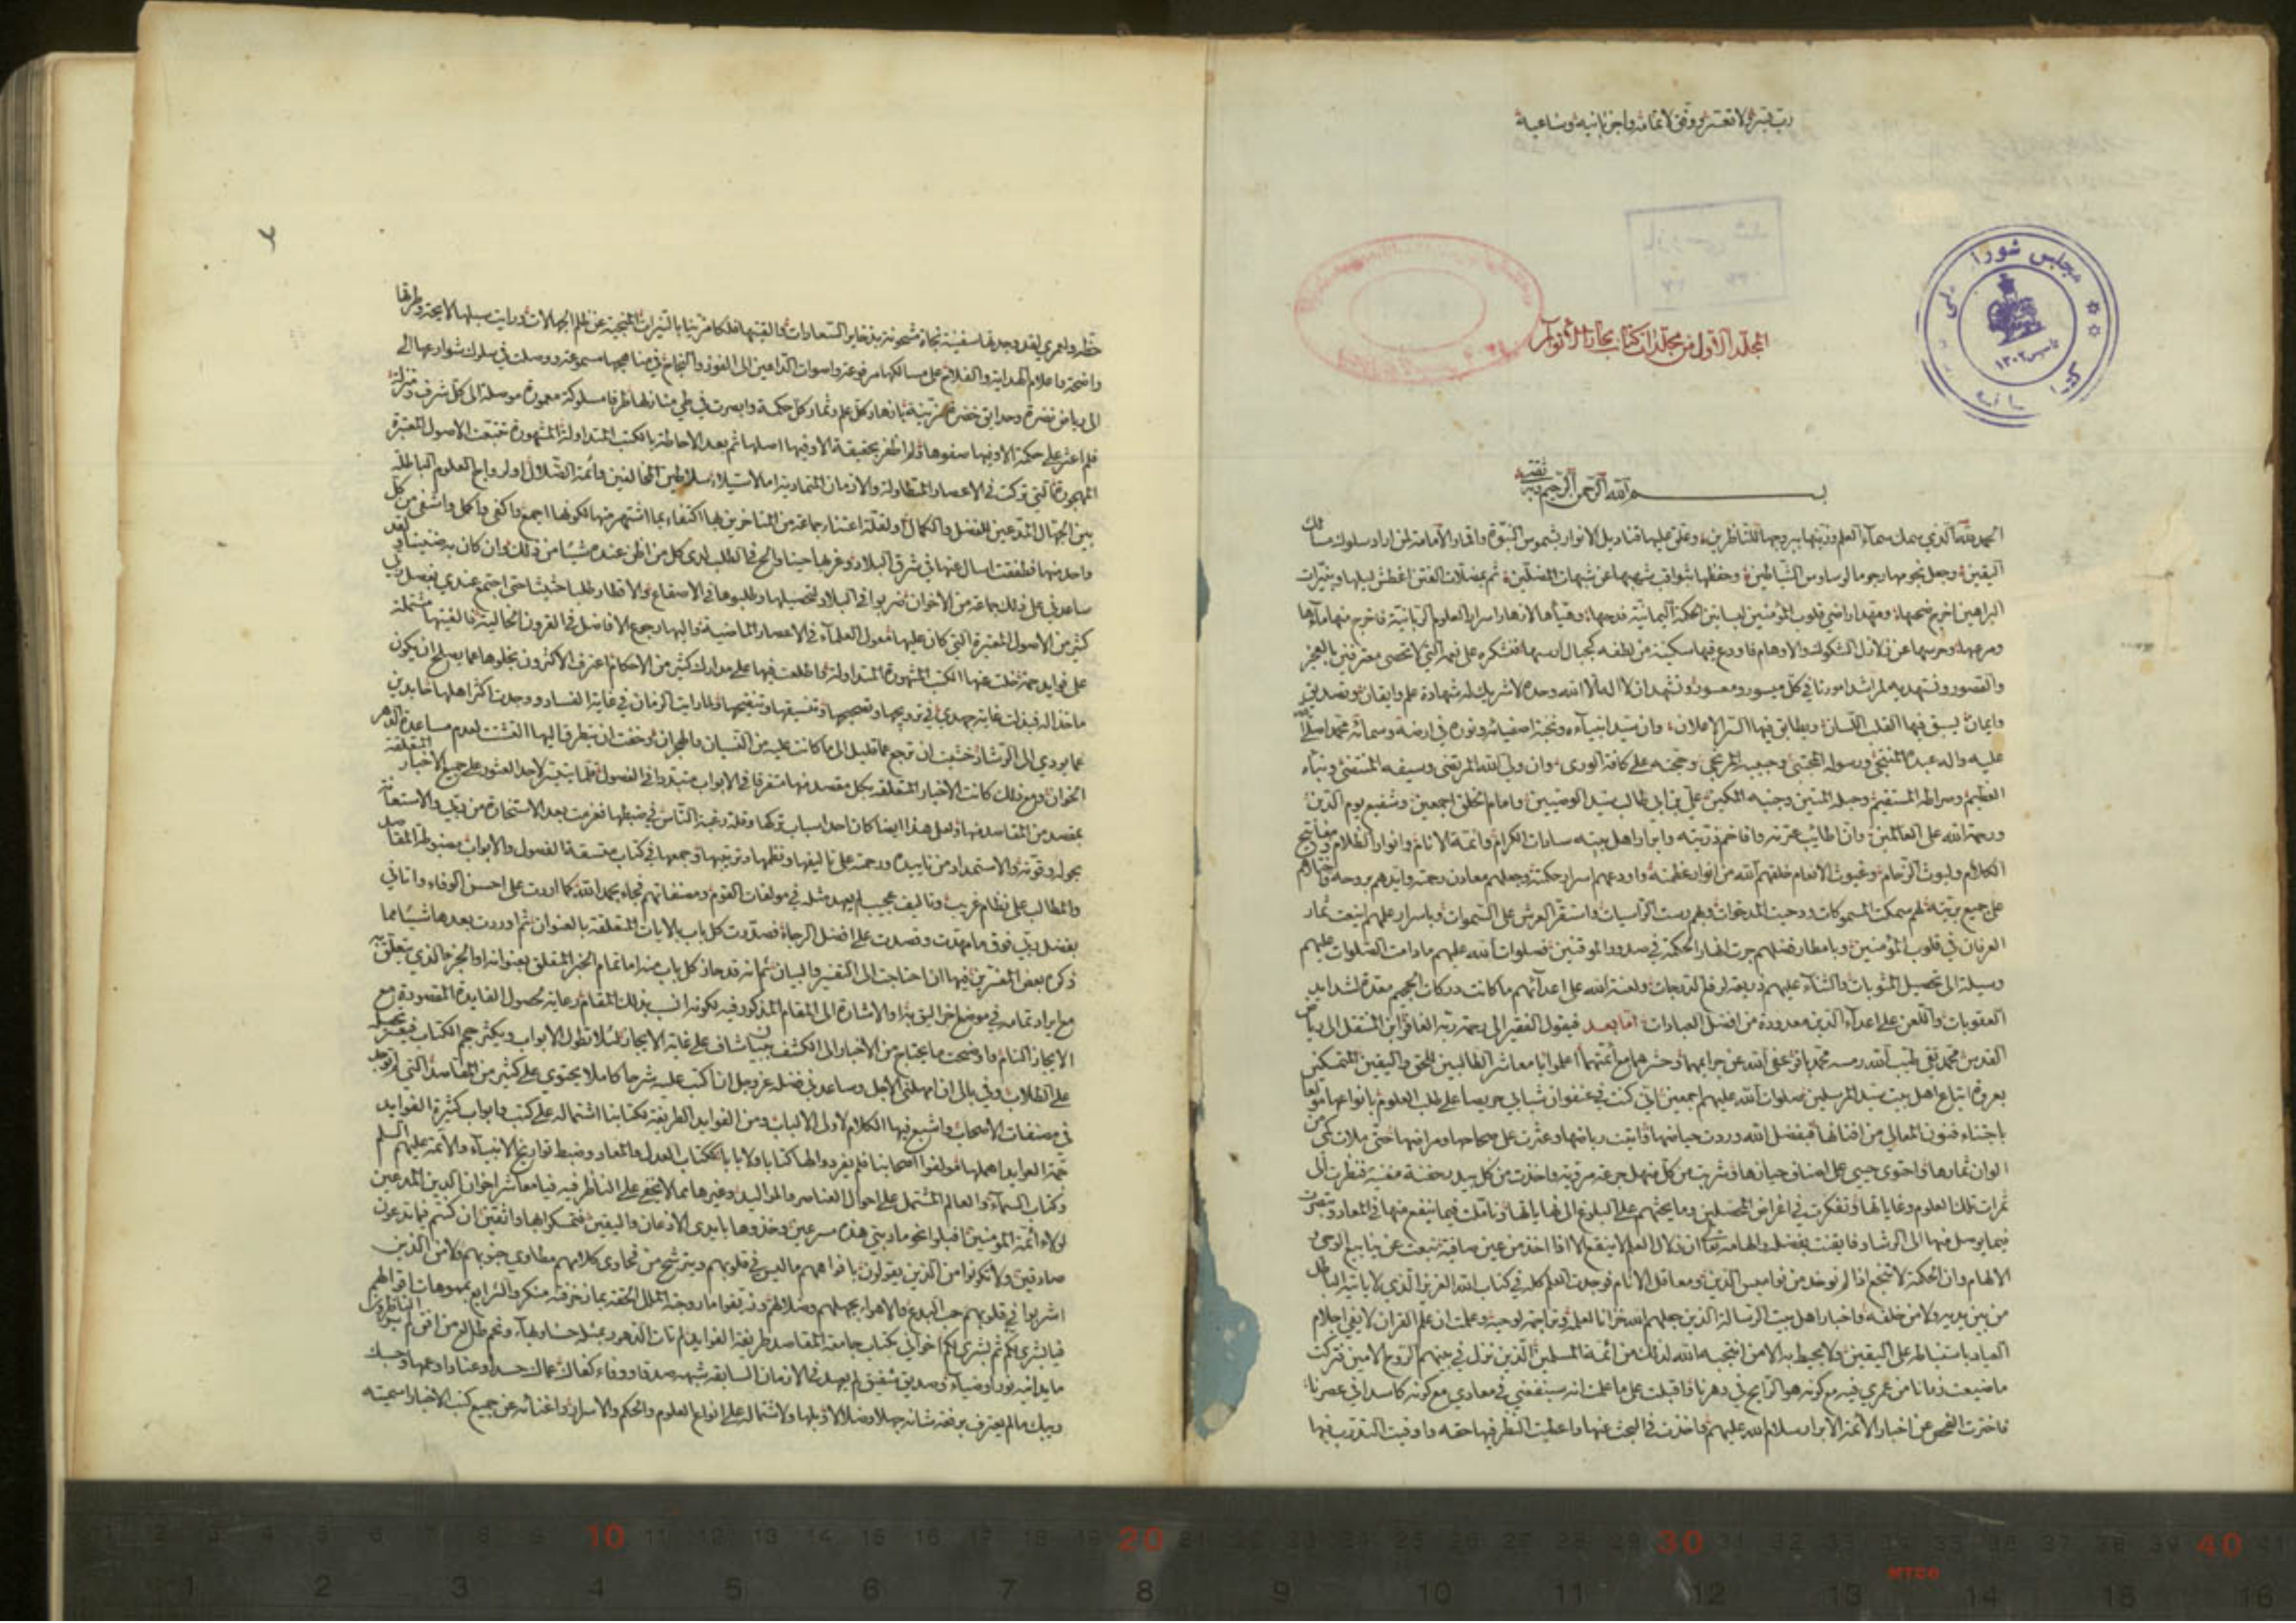 رب يسر ولا تعسر ووفق لاتمامه واجزائه وساعيه
مجلس شورا
ملی
تاسیس ۱۳۰۲
المجلد الاول من مجلدات كتاب بحار الانوار
بسم الله الرحمن الرحيم وبه ثقتي
الحمد لله الذي سمك سماء العلم وزينها ببروجها للناظرين وعلق عليها قناديل الانوار بشموس النبوة واقمار الامامة لمن اراد سلوك مسالك
اليقين وجعل نجومها رجوما لوساوس الشياطين وحفظها بثواقب شهبها عن شبهات المضلين ثم بمضلات الفتن اغطش ليلها وبنيرات
البراهين اخرج ضحيها ومهد اراضي قلوب المؤمنين لبساتين الحكمة اليمانية فدحيها وهيأها لازهار اسرار العلوم الربانية فاخرج منها ماءها
ومرعيها وحرسها عن زلازل الشكوك والاوهام فاودع فيها سكينة من لطفه كجبال ارسيها فنشكره على نعمه التي لا تحصى معترفين بالعجز
والقصور ونستهديه لمراشد امورنا في كل ميسور ومعسور ونشهد ان لا اله الا الله وحده لا شريك له شهادة علم وايقان وتصديق
وايمان يسبق فيها القلب اللسان ويطابق فيها السر الاعلان وان سيد انبيائه ونخبة اصفيائه ونوره في ارضه وسمائه محمدا صلى الله
عليه واله عبده المنتجب ورسوله المجتبى وحبيبه المرتجى وحجته على كافة الورى وان ولي الله المرتضى وسيفه المنتضى ونباه
العظيم وصراطه المستقيم وحبله المتين وجنبه المكين علي بن ابي طالب سيد الوصيين وامام الخلق اجمعين وشفيع يوم الدين
ورحمة الله على العالمين وان اطايب عترته وافاخم ذريته وابرار اهل بيته سادات الكرام وائمة الانام وانوار الظلام ومفاتيح
الكلام وليوث الزحام وغيوث الانعام خلقهم الله من انوار عظمته واودعهم اسرار حكمته وجعلهم معادن رحمته وايدهم بروحه واختارهم
على جميع بريته لهم سمكت المسموكات ودحيت المدحوات وبهم رست الراسيات واستقر العرش على السموات وباسرار علمهم اينعت ثمار
العرفان في قلوب المؤمنين وبامطار فضلهم جرت انهار الحكمة في صدور الموقنين فصلوات الله عليهم ما دامت الصلوات عليهم
وسيلة الى تحصيل المثوبات والثناء عليهم ذريعة لرفع الدرجات ولعنة الله على اعدائهم ما كانت دركات الجحيم معدة لشدايد
العقوبات واللعن على اعداء الدين معدودة من افضل العبادات اما بعد فيقول الفقير الى رحمة ربه الغافر ابن المنتقل الى رياض
القدس محمد تقي طيب الله رمسه محمد باقر عفى الله عن جرايمهما وحشرهما مع ائمتهما اعلموا يا معاشر الطالبين للحق واليقين المتمسكين
بعروة اتباع اهل بيت سيد المرسلين صلوات الله عليهم اجمعين اني كنت في عنفوان شبابي حريصا على طلب العلوم بانواعها مولعا
باجتناء فنون المعالي من افنانها فبفضل الله وردت حياضها واتيت رياضها وعثرت على صحاحها ومراضها حتى ملات كمي من
الوان ثمارها واحتوى جيبي على اصناف خيارها وشربت من كل منهل جرعة مروية واخذت من كل بيدر حفنة مغنية فنظرت الى
ثمرات تلك العلوم وغاياتها وتفكرت في اغراض المحصلين وما يحثهم على البلوغ الى نهاياتها وتاملت فيما ينفع منها في المعاد وتبصرت
فيما يوصل منها الى الرشاد فايقنت بفضله والهامه تعالى ان زلال العلم لا ينقع الا اذا اخذ من عين صافية نبعت عن ينابيع الوحي و
الالهام وان الحكمة لا تنجع اذا لم توخذ من نواميس الدين ومعاقل الانام فوجدت العلم كله في كتاب الله العزيز الذي لا ياتيه الباطل
من بين يديه ولا من خلفه واخبار اهل بيت الرسالة الذين جعلهم الله خزانا لعلمه وتراجمة لوحيه وعلمت ان علم القران لا يفي احلام
العباد باستنباطه على اليقين ولا يحيط به الا من انتجبه الله لذلك من ائمة المسلمين الذين نزل في بيتهم الروح الامين فتركت
ما ضيعت زمانا من عمري فيه مع كونه هو الرايج في دهرنا واقبلت على ما علمت انه سينفعني في معادي مع كونه كاسدا في عصرنا
فاخترت الفحص عن اخبار الائمة الابرار سلام الله عليهم واخذت في البحث عنها واعطيت النظر فيها حقه واوفيت التدرب فيها
حظه ولعمري لقد وجدتها سفينة نجاة مشحونة بذخاير السعادات والفيتها فلكا مزينا بالنيرات المنجية عن ظلم الجهالات ورايت سبلها لايحة وطرقها
واضحة واعلام الهداية والفلاح على مسالكها مرفوعة واصوات الداعين الى الفوز والنجاح في مناهجها مسموعة ووصلت في سلوك شوارعها الى
الى رياض نضرة وحدايق خضرة مزينة بازهار كل علم وثمار كل حكمة وابصرت في طي منازلها طرقا مسلوكة معمورة موصلة الى كل شرف ومنزلة
فلم اعثر على حكمة الا وفيها صفوها ولم اظفر بحقيقة الا وفيها اصلها ثم بعد الاحاطة بالكتب المتداولة المشهورة تتبعت الاصول المعتبرة
المهجورة التي تركت في الاعصار المتطاولة والازمان المتمادية اما لاستيلاء سلاطين المخالفين وائمة الضلال او لرواج العلوم الباطلة
بين الجهال المدعين للفضل والكمال او لقلة اعتناء جماعة من المتاخرين بها اكتفاء بما اشتهر منها لكونها اجمع واكفى واكمل واشفى من كل
واحد منها فطفقت اسال عنها في شرق البلاد وغربها حينا والح في الطلب لدى كل من اظن عنده شيئا من ذلك وان كان به ضنينا ولقد
ساعدني على ذلك جماعة من الاخوان ضربوا في البلاد لتحصيلها وطلبوها في الاصقاع والاقطار طلبا حثيثا حتى اجتمع عندي بفضل ربي
كثير من الاصول المعتبرة التي كان عليها معول العلماء في الاعصار الماضية واليها رجوع الافاضل في القرون الخالية فالفيتها مشتملة
على فوايد جمة خلت عنها الكتب المشهورة المتداولة واطلعت فيها على مدارك كثير من الاحكام اعترف الاكثرون بخلوها عما يصلح ان يكون
ماخذا له فبذلت غاية جهدي في ترويجها وتصحيحها وتنسيقها وتنقيحها ولما رايت الزمان في غاية الفساد ووجدت اكثر اهلها حايدين
عما يودي الى الرشاد خشيت ان ترجع عما قليل الى ما كانت عليه من النسيان والهجران وخفت ان يتطرق اليها التشتت لعدم مساعدة الدهر
الخوان ومع ذلك كانت الاخبار المتعلقة بكل مقصد منها متفرقا في الابواب متبددا في الفصول قلما يتيسر لاحد العثور على جميع الاخبار المتعلقة
بمقصد من المقاصد منها ولعل هذا ايضا كان احد اسباب تركها وقلة رغبة الناس في ضبطها فعزمت بعد الاستخارة من ربي والاستعانة
بحوله وقوته والاستمداد من تاييده ورحمته على تاليفها ونظمها وترتيبها وجمعها في كتاب متسقة الفصول والابواب مضبوطة المقاصد
والمطالب على نظام غريب وتاليف عجيب لم يعهد مثله في مولفات القوم ومصنفاتهم فجاء بحمد الله كما اردت على احسن الوفاء واتاني
بفضل ربي فوق ما مهدت وقصدت على افضل الرجاء فصدرت كل باب بالايات المتعلقة بالعنوان ثم اوردت بعدها شيئا مما
ذكره بعض المفسرين فيها ان احتاجت الى التفسير والبيان ثم انه قد حاز كل باب منه اما تمام الخبر المتعلق بعنوانه او الجزء الذي يتعلق به
مع ايراد تمامه في موضع اخر اليق به او الاشارة الى المقام المذكور فيه لكونه انسب بذلك المقام رعاية لحصول الفايدة المقصودة مع
الايجاز التام واوضحت ما يحتاج من الاخبار الى الكشف ببيان شاف على غاية الايجاز لئلا تطول الابواب ويكثر حجم الكتاب فيعسر تحصيله
على الطلاب وفي بالي ان امهلني الاجل وساعدني فضله عز وجل ان اكتب عليه شرحا كاملا يحتوي على كثير من المقاصد التي لم توجد
في مصنفات الاصحاب واشبع فيها الكلام لاولي الالباب ومن الفوايد الطريفة لكتابنا اشتماله على كتب وابواب كثيرة الفوايد
جمة العوايد اهملها مولفوا اصحابنا فلم يفردوا لها كتابا ولا بابا ككتاب العدل والمعاد وضبط تواريخ الانبياء والائمة عليهم السلم
وكتاب السماء والعالم المشتمل على احوال العناصر والمواليد وغيرها مما لا يخفى على الناظر فيه فيا معاشر اخوان الدين المدعين
لولاء ائمة المؤمنين اقبلوا نحو مادبتي هذه مسرعين وخذوها بايدي الاذعان واليقين فتمسكوا بها واثقين ان كنتم فيما تدعون
صادقين ولا تكونوا من الذين يقولون بافواههم ما ليس في قلوبهم ويترشح من فحاوي كلامهم مطاوي جنوبهم ولا من الذين
اشربوا في قلوبهم حب البدع والاهواء بجهلهم وضلالهم وزيفوا ما روجته الملل الحقة بما زخرفته منكروا الشرايع بمموهات اقوالهم
فيا بشرى لكم ثم بشرى لكم اخواني بكتاب جامعة المقاصد طريفة الفوايد لم تات الدهور بمثله حسنا وبهاء ونجم طالع من افق الغيوب لم ير الناظرون
ما يدانيه نورا وضياء وصديق شفيق لم يعهد في الازمان السابقة شبهه صدقا ووفاء كفاك عماك
ولاشتماله على انواع العلوم والحكم والاسرار واغنائه عن جميع كتب الاخبار سميته